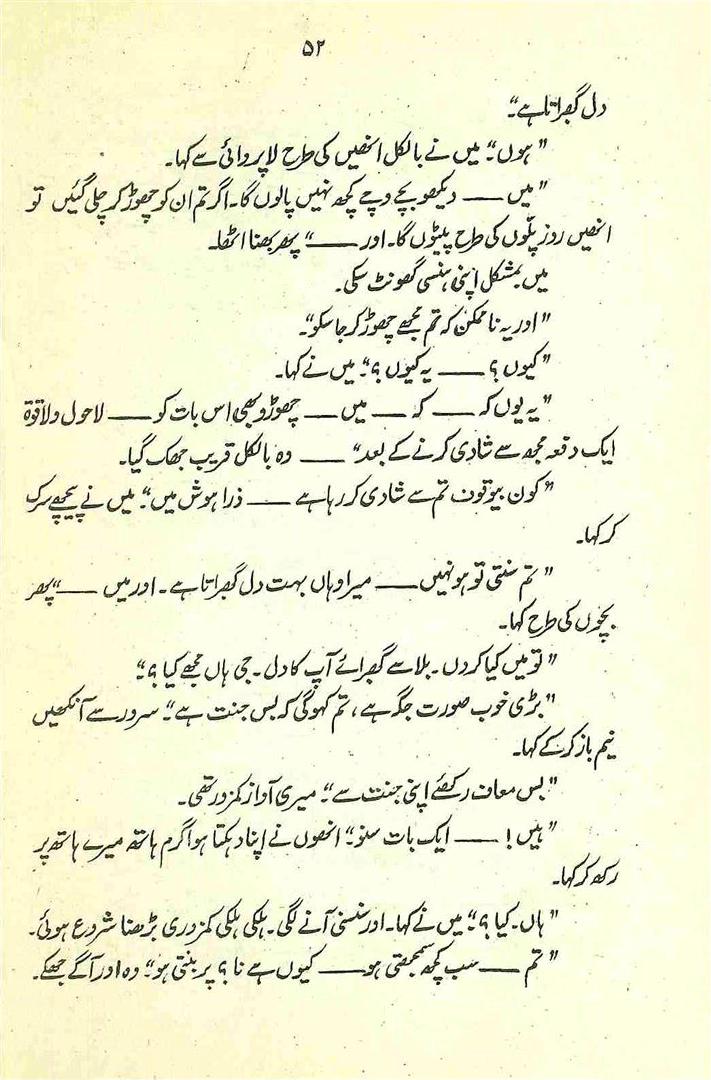 ۵۲
دل گھبراتا ہے۔"
"ہوں"۔ میں نے بالکل انھیں کی طرح لا پروائی سے کہا۔
"میں ــــ دیکھو بچے وچے کچھ نہیں پالوں گا۔ اگر تم ان کو چھوڑ کر چلی گئیں تو
انھیں روز پلّوں کی طرح پیٹوں گا۔ اور ــــ" پھر بھنا اٹھا۔
میں بمشکل اپنی ہنسی گھونٹ سکی۔
"اور یہ نا ممکن کہ تم مجھے چھوڑ کر جا سکو"۔
"کیوں؟ ــــ یہ کیوں؟"۔ میں نے کہا۔
"یہ یوں کہ ــــ کہ ــــ میں ــــ چھوڑو بھی اس بات کو ــــ لاحول ولا قوۃ
ایک دفعہ مجھ سے شادی کرنے کے بعد" ــــ وہ بالکل قریب جھک گیا۔
"کون بیوقوف تم سے شادی کر رہا ہے ــــ ذرا ہوش میں"۔ میں نے پیچھے سرک
کر کہا۔
"تم سنتی تو ہو نہیں ــــ میرا وہاں بہت دل گھبراتا ہے۔ اور میں ــــ" پھر
بچوں کی طرح کہا۔
"تو میں کیا کروں۔ بلا سے گھبرائے آپ کا دل۔ جی ہاں مجھے کیا؟"۔
"بڑی خوب صورت جگہ ہے، تم کہو گی کہ بس جنت ہے"۔ سرور سے آنکھیں
نیم باز کر کے کہا۔
"بس معاف رکھئے اپنی جنت سے"۔ میری آواز کمزور تھی۔
"ہیں! ــــ ایک بات سنو"۔ انھوں نے اپنا دہکتا ہوا گرم ہاتھ میرے ہاتھ پر
رکھ کر کہا۔
"ہاں۔ کیا؟"۔ میں نے کہا۔ اور سنسنی آنے لگی۔ ہلکی ہلکی کمزوری بڑھنا شروع ہوئی۔
"تم ــــ سب کچھ سمجھتی ہو ــــ کیوں ہے نا؟ پر بنتی ہو"۔ وہ اور آگے جھکے۔